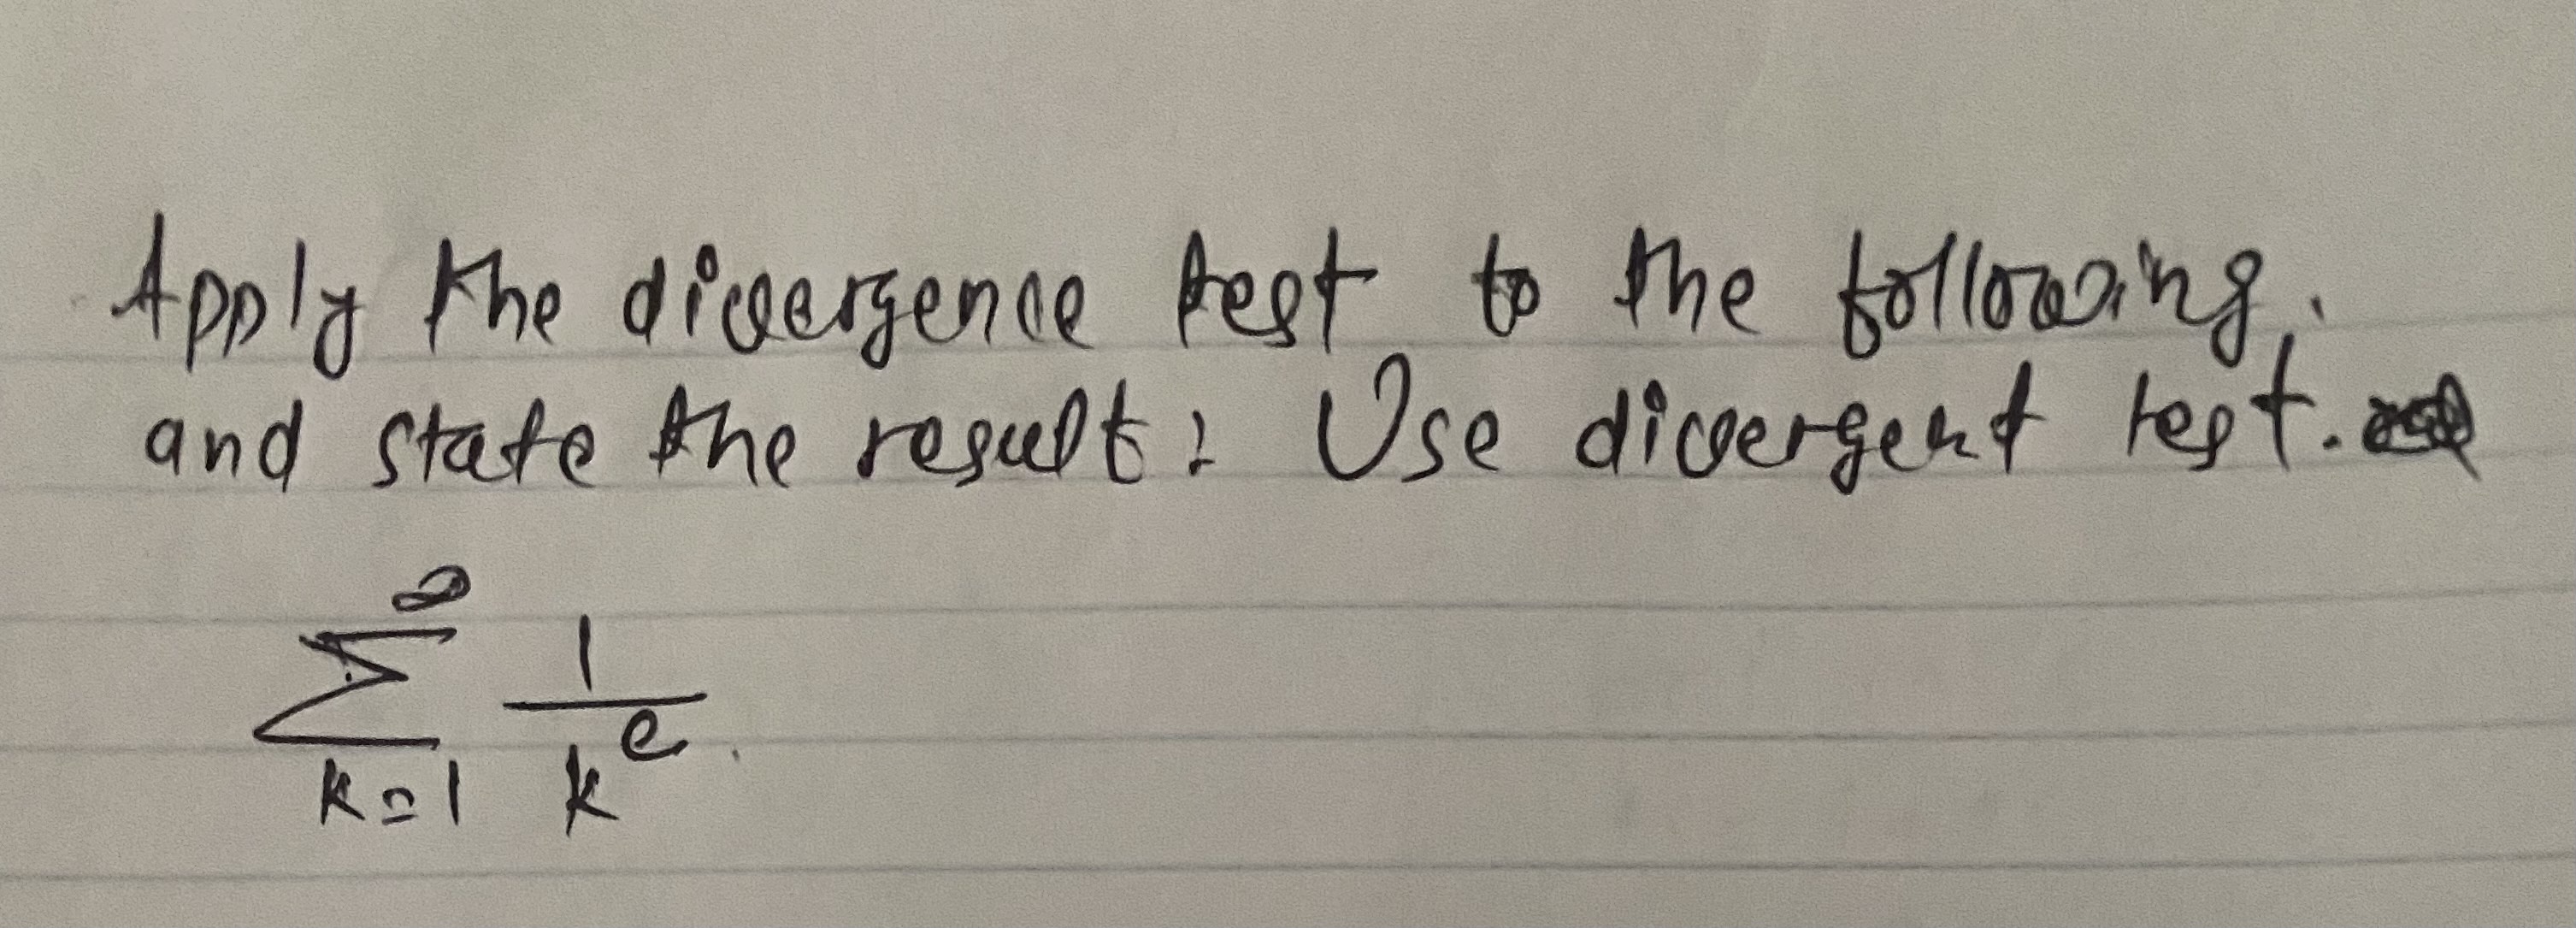 Apply the divergence test to the following.
and state the result: Use divergent test.
∞
∑ 1/k^e.
k=1